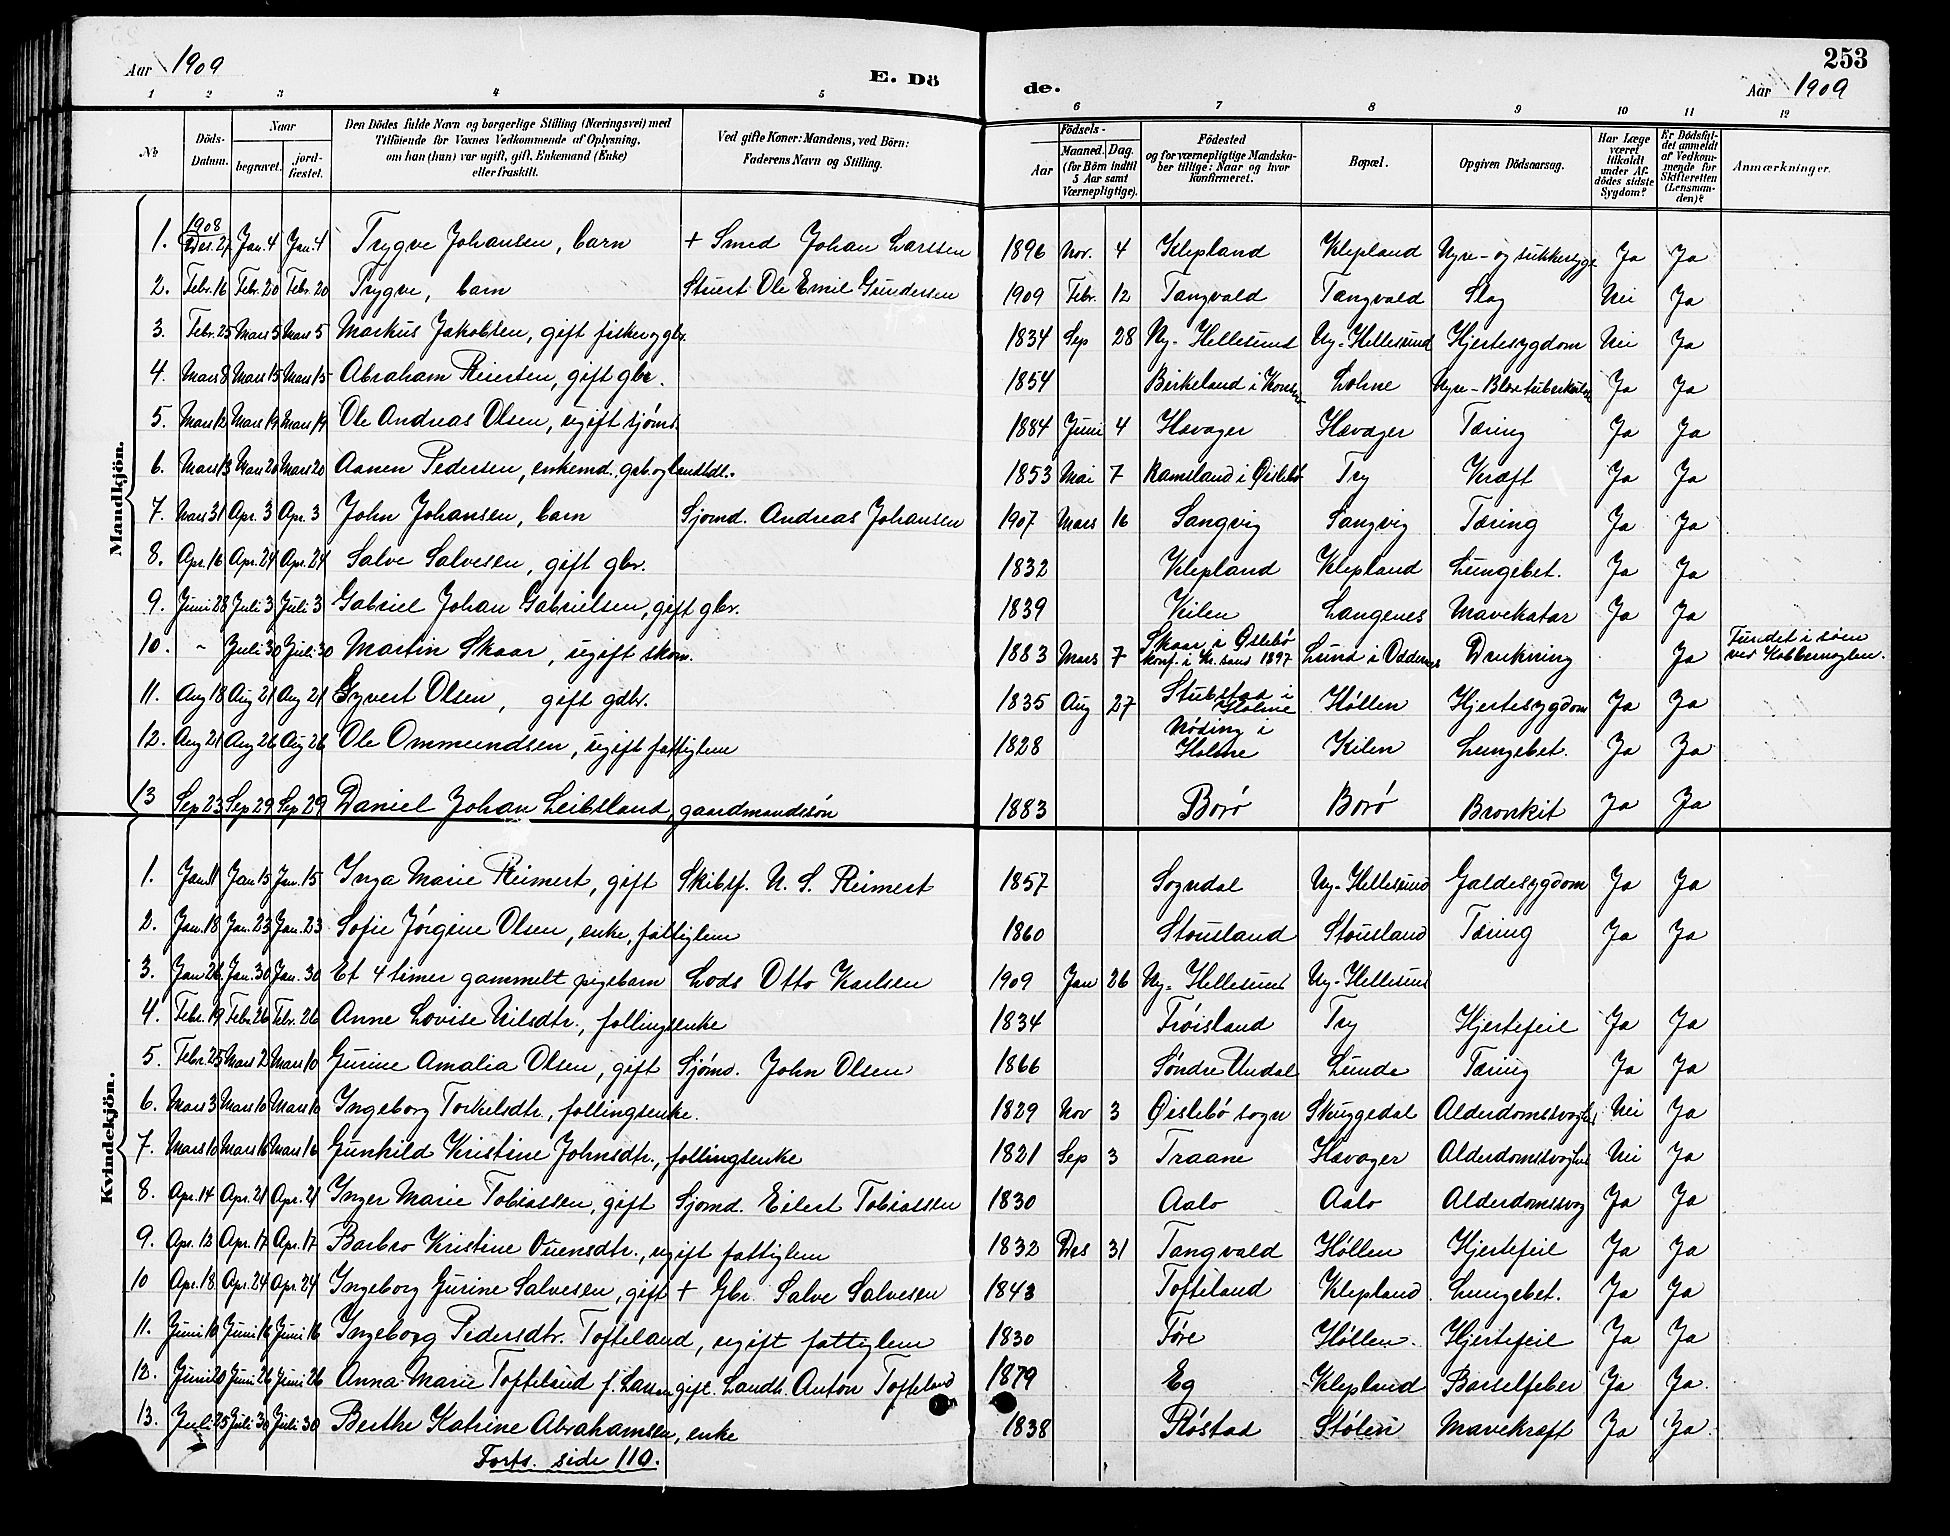 Aar 1909
E. Dö
de.
Aar 1909
253
1 2 3 4 5 6 7 8 9 10 11 12
No
Döds-Datum.
Naar
begravet.
jord-fæstet.
Den Dödes fulde Navn og borgerlige Stilling (Næringsvei) med Tilföiende for Voxnes Vedkommende af Oplysning, om han (hun) var ugift, gift, Enkemand (Enke) eller fraskilt.
Ved gifte Koner: Mandens, ved Börn: Faderens Navn og Stilling.
Födsels-
Aar
Maaned. Dag.
(for Börn indtil 5 Aar samt Værnepligtige).
Födested og for værnepligtige Mandskaber tillige: Naar og hvor konfirmeret.
Bopæl.
Opgiven Dödsaarsag.
Har Læge været tilkaldt under Afdödes sidste Sygdom?
Er Dödsfaldet anmeldt af Vedkommende for Skifteretten (Lensmanden)?
Anmærkninger.
Mandkjön.
1. 1908 Des. 27 Jan. 4 Jan. 4 Trygve Johansen, barn + Smed Johan Larssen 1896 Nov. 4 Klepland Klepland Nyre- og sukkersyge Ja Ja
2. Febr. 16 Febr. 20 Febr. 20 Trygve, barn Stuert Ole Emil Gundersen 1909 Febr. 12 Tangvald Tangvald Slag Nei Ja
3. Febr. 25 Mars 5 Mars 5 Markus Jakobsen, gift fisker og gbr. 1834 Sep 28 Ny-Hellesund Ny-Hellesund Hjertesygdom Nei Ja
4. Mars 8 Mars 15 Mars 15 Abraham Reiersen, gift gbr. 1854 Birkeland i Lohne Nyre- Ja Ja
5. Mars 12 Mars 19 Mars 19 Ole Andreas Olsen, ugift sjømd. 1884 Juni 4 Hævager Hævager Tæring Ja Ja
6. Mars 13 Mars 20 Mars 20 Aanen Pedersen, enkemd. gbr. og landhdl. 1853 Mai 7 Ramsland i Øislebø Try Kræft Ja Ja
7. Mars 31 Apr. 3 Apr. 3 John Johansen, barn Sjömd. Andreas Johansen 1907 Mars 16 Langvig Langvig Tæring Ja Ja
8. Apr. 16 Apr. 24 Apr. 24 Salve Salvesen, gift gbr. 1832 Klepland Klepland Lungebet. Ja Ja
9. Juni 28 Juli 3 Juli 3 Gabriel Johan Gabrielsen, gift gbr. 1839 Kilen Langenes Mavekatar Ja Ja
10. " Juli 30 Juli 30 Martin Skaar, ugift skom. 1883 Mars 7 Skaar i Øslebø konf. i Kr.sand 1897 Lund i Oddernes Drukning Ja Fundet i söen ved Kobbernaglen.
11. Aug 18 Aug 21 Aug 21 Syvert Olsen, gift gdbr. 1835 Aug 27 Stubstad i Holme Høllen Hjertesygdom Ja Ja
12. Aug 21 Aug 26 Aug 26 Ole Ommundsen, ugift fattiglem 1828 Nøding i Holme Kilen Lungebet. Ja Ja
13 Sep 23 Sep 29 Sep 29 Daniel Johan Leibsland, gaardmandssøn 1883 Borø Borø Bronkit Ja Ja
Kvindekjön.
1. Jan. 11 Jan 15 Jan. 15 Inga Marie Reimert, gift Skibsf. N. S. Reimert 1857 Sogndal Ny-Hellesund Galdesygdom Ja Ja
2. Jan. 18 Jan. 23 Jan. 23 Sofie Jörgine Olsen, enke, fattiglem 1860 Stousland Stousland Tæring Ja Ja
3. Jan 26 Jan. 30 Jan. 30 Et 4 timer gammelt pigebarn Lods Otto Karlsen 1909 Jan 26 Ny-Hellesund Ny-Hellesund
4. Febr. 19 Febr. 26 Febr. 26 Anne Lovise Nilsdtr., follingsenke 1834 Frøisland Try Hjertefeil Ja Ja
5. Febr. 25 Mars 2 Mars 10 Gurine Amalia Olsen, gift Sjömd. John Olsen 1866 Søndre Undal Lunde Tæring Ja Ja
6. Mars 3 Mars 10 Mars 10 Ingeborg Torkilsdtr., follingsenke. 1829 Nov 3 Øislebø sogn Skuggedal Alderdomssvaghed Nei Ja
7. Mars 10 Mars 16 Mars 16 Gunhild Kristine Johnsdtr., follingsenke 1821 Sep 3 Traane Hævager Alderdomssvaghed Nei Ja
8. Apr. 14 Apr. 21 Apr. 21 Inger Marie Tobiassen, gift Sjömd. Eilert Tobiassen 1830 Aalo Aalo Alderdomssvag Ja Ja
9. Apr. 12 Apr. 17 Apr. 17 Barbro Kristine Ouensdtr., ugift fattiglem 1832 Des 31 Tangvald Høllen Hjertefeil Ja Ja
10 Apr. 18 Apr. 24 Apr. 24 Ingeborg Gurine Salvesen, gift + Gbr. Salve Salvesen 1843 Tofteland Klepland Lungebet. Ja Ja
11. Juni 10 Juni 16 Juni 16 Ingeborg Pedersdtr. Tofteland, ugift fattiglem 1830 Føre Høllen. Hjertefeil Ja Ja
12. Juni 20 Juni 26 Juni 26 Anna Marie Tofteland f. Larsen gift. Landh. Anton Tofteland 1879 Eg Klepland Barselfeber Ja Ja.
13. Juli 25 Juli 30 Juli 30 Berthe Katrine Abrahamsen, enke 1838 Røstad Stølen Mavekræft Ja Ja.
Forts. side 110.